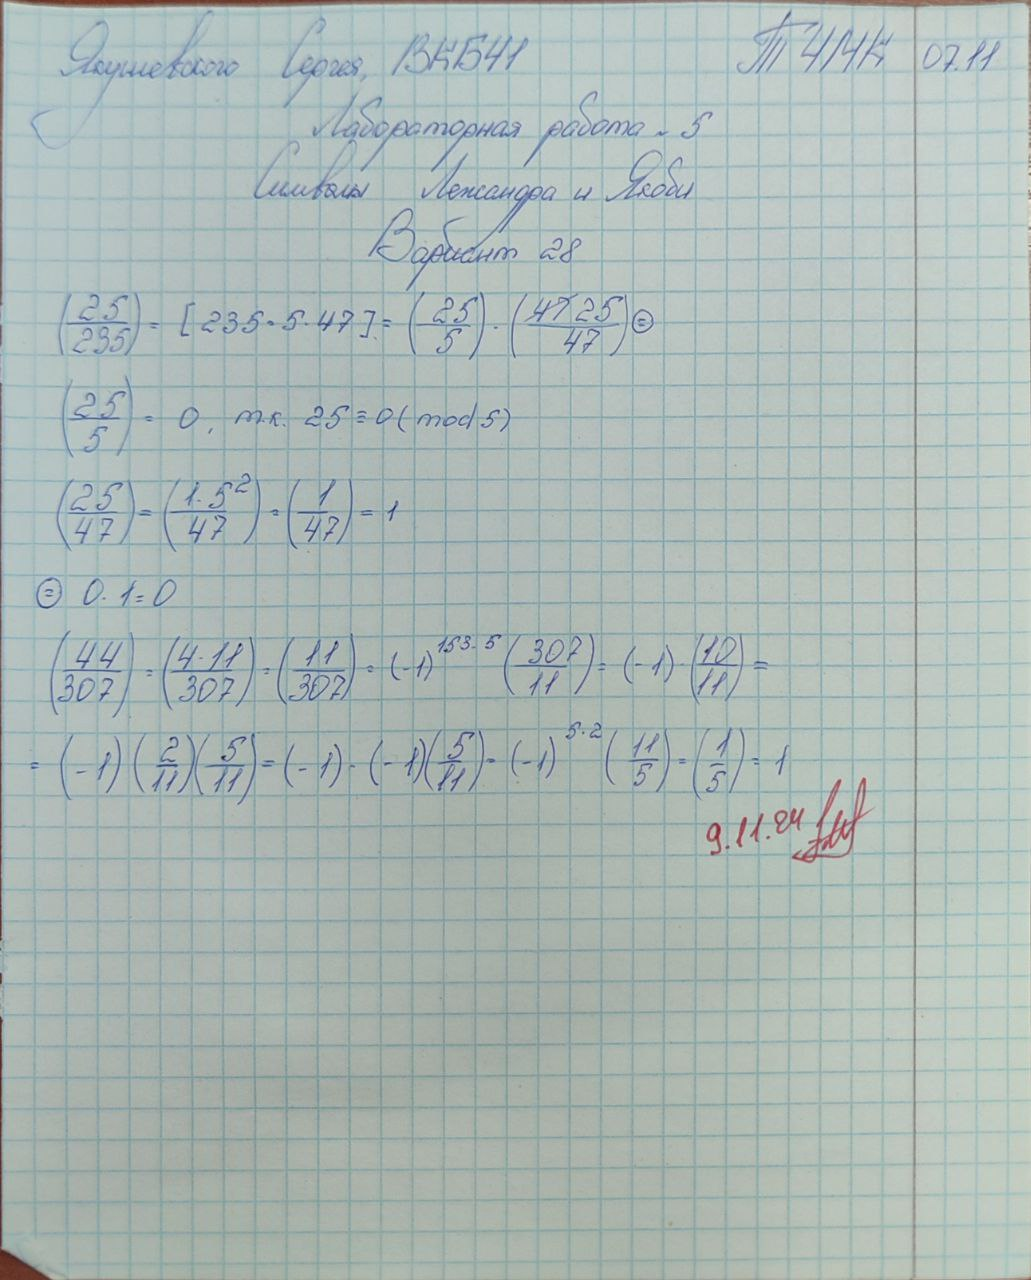 Якушевского Сергея, ВКБ41 ТЧМК 07.11
Лабораторная работа №5
Символы Лежандра и Якоби
Вариант 28
(25/235) = [235=5·47] = (25/5) · (25/47) ⊜
(25/5) = 0, т.к. 25≡0(mod 5)
(25/47) = (1·5²/47) = (1/47) = 1
⊜ 0·1=0
(44/307) = (4·11/307) = (11/307) = (-1)^153·5 (307/11) = (-1)·(10/11) =
= (-1)(2/11)(5/11) = (-1)·(-1)(5/11) = (-1)^5·2 (11/5) = (1/5) = 1
9.11.24